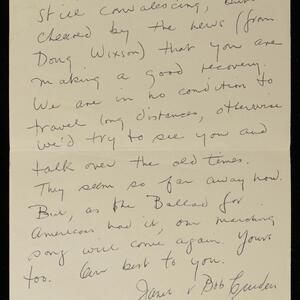 still convalescing, but
cheered by the news (from
Doug Wixson) that you are
making a good recovery.
We are in no condition to
travel long distances, otherwise
we'd try to see you and
talk over the old times.
They seem so far away now.
But, as the Ballad for
Americans had it, our marching
song will come again. Yours
too. Our best to you.
& Bob